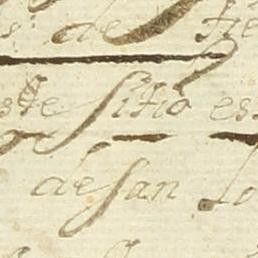 de tie
ste sitio es
de san Lo